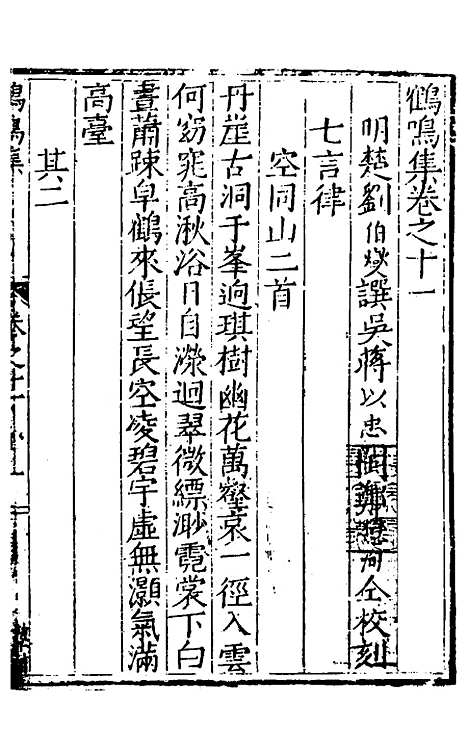 鶴鳴集卷之十一
明楚劉伯燮譔吳蔣以忠仝校刻
七言律
空同山二首
丹崖古洞千峯逈琪樹幽花萬壑哀一徑入雲
何窈窕高湫浴日自濚迴翠微縹渺霓裳下白
晝蕭疎皁鶴來倀望長空凌碧宇虛無灝氣滿
高臺
其二
鶴鳴集
卷之十一